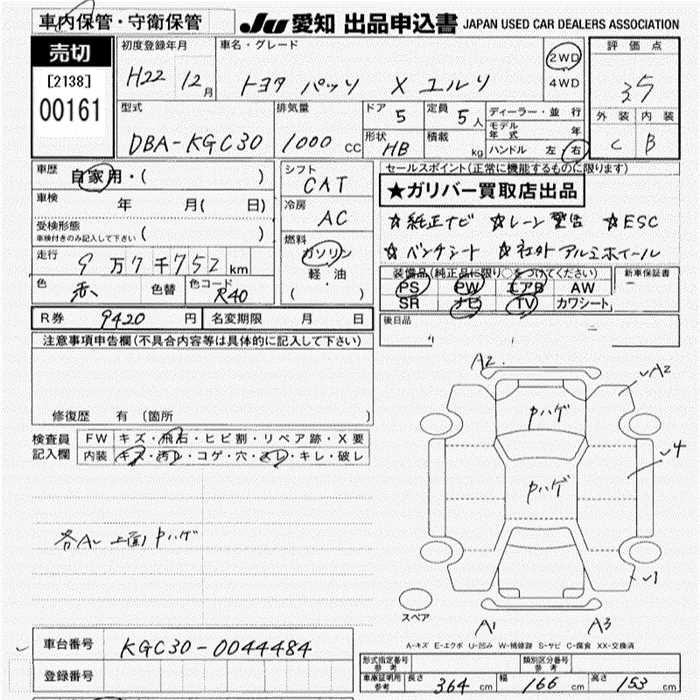 車内保管・守衛保管
JU 愛知 出品申込書 JAPAN USED CAR DEALERS ASSOCIATION
売切
[2138]
00161
初度登録年月
H22 12月
車名・グレード
トヨタ パッソ X ユルリ
2WD
4WD
評価点
3.5
外装 内装
C B
型式
DBA-KGC30
排気量
1000 CC
ドア 5
定員 5人
形状 HB
積載 kg
ディーラー・並行
モデル年式 年
ハンドル 左 右
車歴
自家用・( )
車検
年 月( 日)
受検形態
車検付きのみ記入して下さい ( )
走行
9万7千752km
色
赤
色替
色コード
R40
シフト
CAT
冷房
AC
燃料
ガソリン
軽油
( ・ )
セールスポイント(正常に機能するものに限ります)
★ガリバー買取店出品
☆純正ナビ ☆レーン警告 ☆ESC
☆ベンチシート ☆社外アルミホイール
装備品(純正品に限り○をつけてください)
PS PW エアB AW
SR ナビ TV カワシート
新車保証書
後日品
R券 9420 円
名変期限 月 日
注意事項申告欄(不具合内容等は具体的に記入して下さい)
修復歴 有 〔箇所 〕
検査員
記入欄
FW キズ・飛石・ヒビ割・リペア跡・X要
内装 キズ・汚レ・コゲ・穴・スレ・キレ・破レ
各A〜 上面Pハゲ
A2
A2
Pハゲ
Pハゲ
4
1
スペア
A1
A3
A-キズ E-エクボ U-凹み W-補修跡 S-サビ C-腐食 XX-交換済
車台番号
KGC30-0044484
登録番号
形式指定番号
参考
類別区分番号
参考
車庫証明用
参考
長さ 364 cm
幅 166 cm
高さ 153 cm